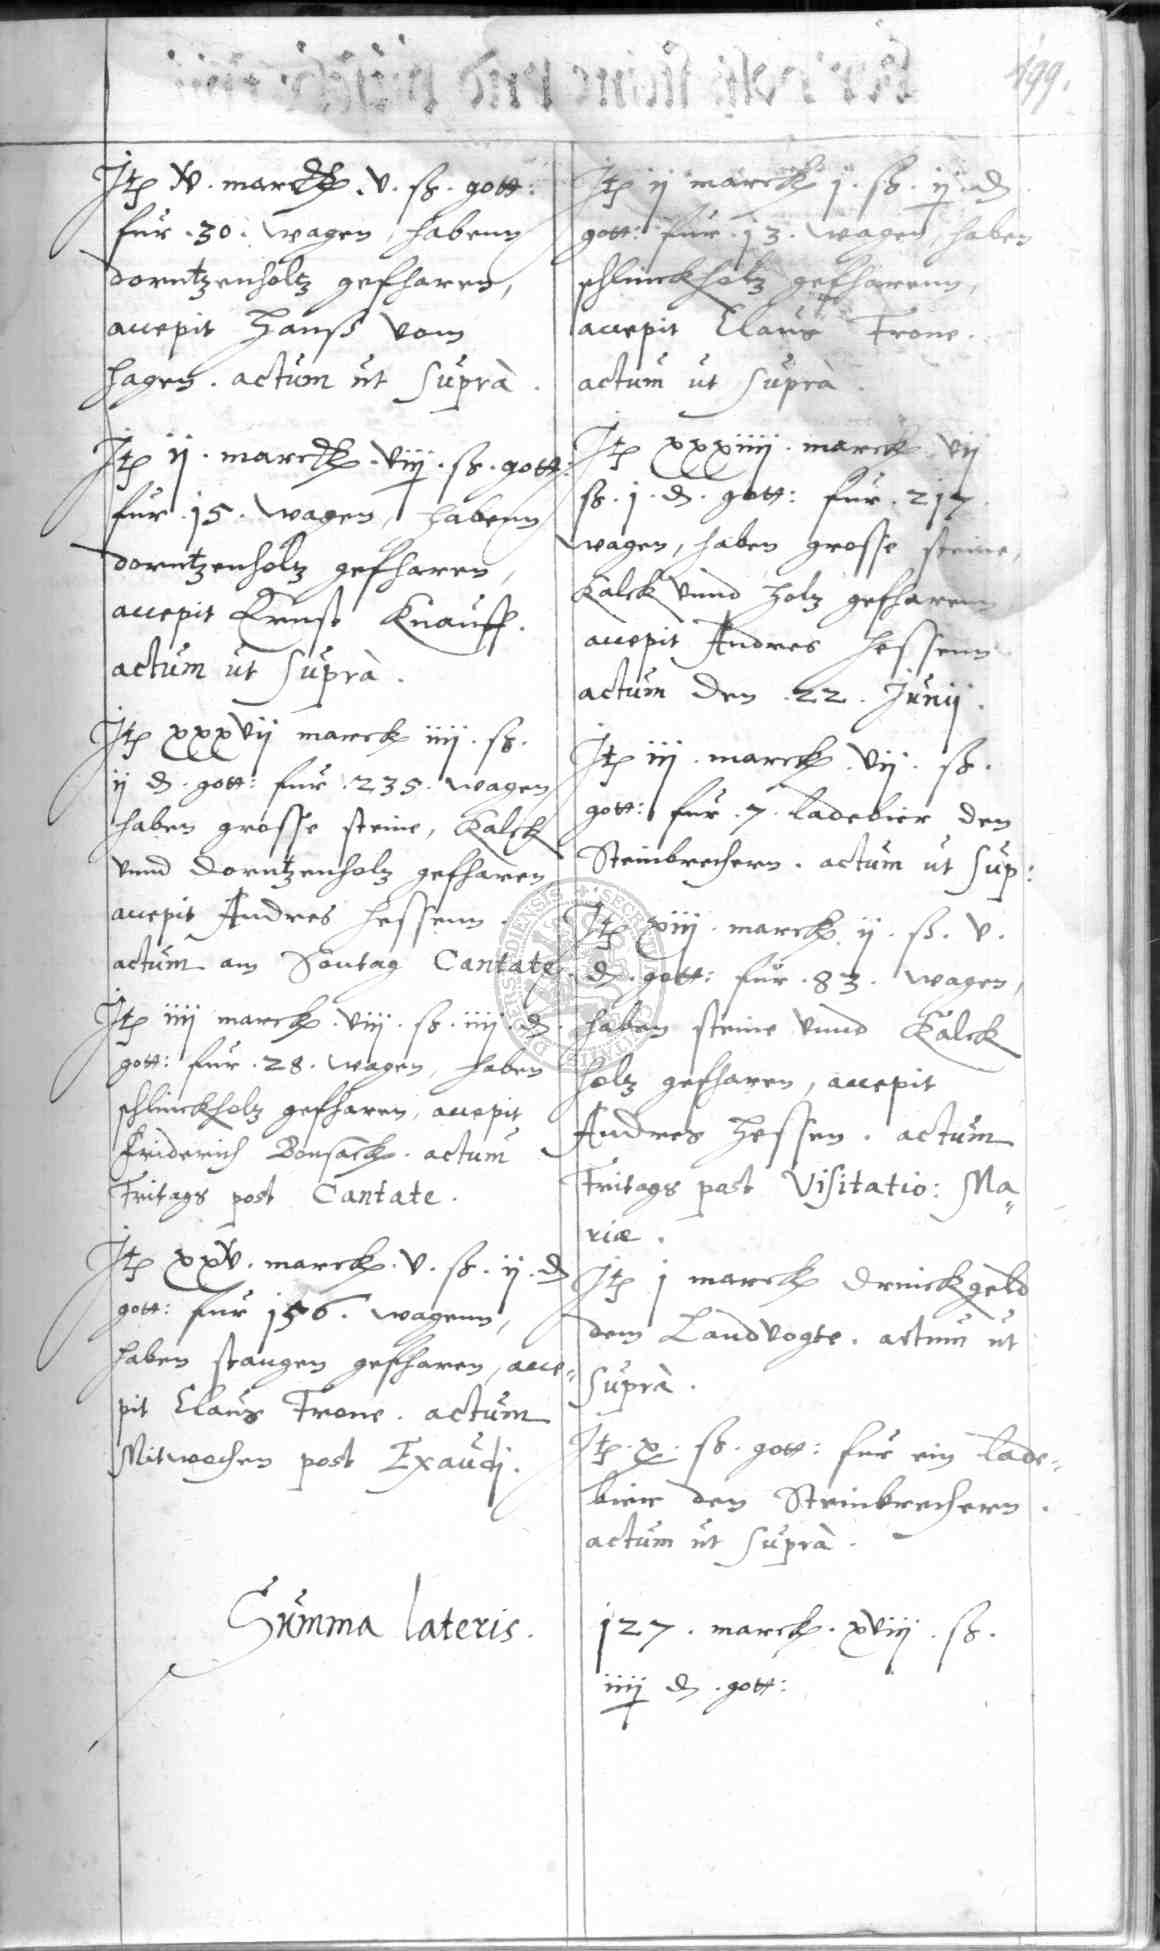 199.
Jtem v. marck. v. ß. gott:
für .30. wagen, habenn
dorntzenholtz gefharen,
accepit Hanß vom
Hagen. actum ut suprà.
Jtem ij. marck. viij. ß. gott:
für .15. wagen, habenn
dorntzenholtz gefharen,
accepit Ernst Knauff.
actum ut suprà.
Jtem xxxvij marck iiij. ß.
ij d. gott: fur .235. wagen
haben grosse steine, Kalck
vnnd dorntzenholtz gefharen
accepit Andres Hessenn.
actum am Sontag Cantate.
Jtem iiij marck. viij. ß. iiij. d.
gott: fur .28. wagen, haben
schlinckholtz gefharen, accepit
Friderich Bonsack. actum
Fritags post Cantate.
Jtem xxv. marck. v. ß. ij. d
gott: fur 156. wagenn,
haben stangen gefharen, acce-
pit Claus Trone. actum
Mitwochen post Exaudi.
Summa lateris.
Jtem ij marck j. ß. ij. d
gott: für .13. wagen, haben
schlinckholtz gefharenn,
accepit Claus Trone.
actum ut suprà.
Jtem xxxiiij. marck vij
ß. j. d. gott: für .217.
wagen, haben grosse steine,
Kalck vnnd holtz gefharenn
accepit Andres Hessenn
actum den .22. Junij.
Jtem iij. marck. vij. ß.
gott: fur .7. ladebier den
Steinbrechern. actum ut sup:
Jtem xiij. marck ij. ß. v.
d. gott: für .83. wagen,
haben steine vnnd Kalck
holtz gefharen, accepit
Andres Hessen. actum
Fritags post Visitatio: Ma-
riæ.
Jtem j marck drinckgeld
dem Landvogte. actum ut
suprà.
Jtem. x. ß. gott: fur ein lade-
bier den Steinbrechern.
actum ut suprà.
127. marck. xviij. ß.
iiij d. gott: